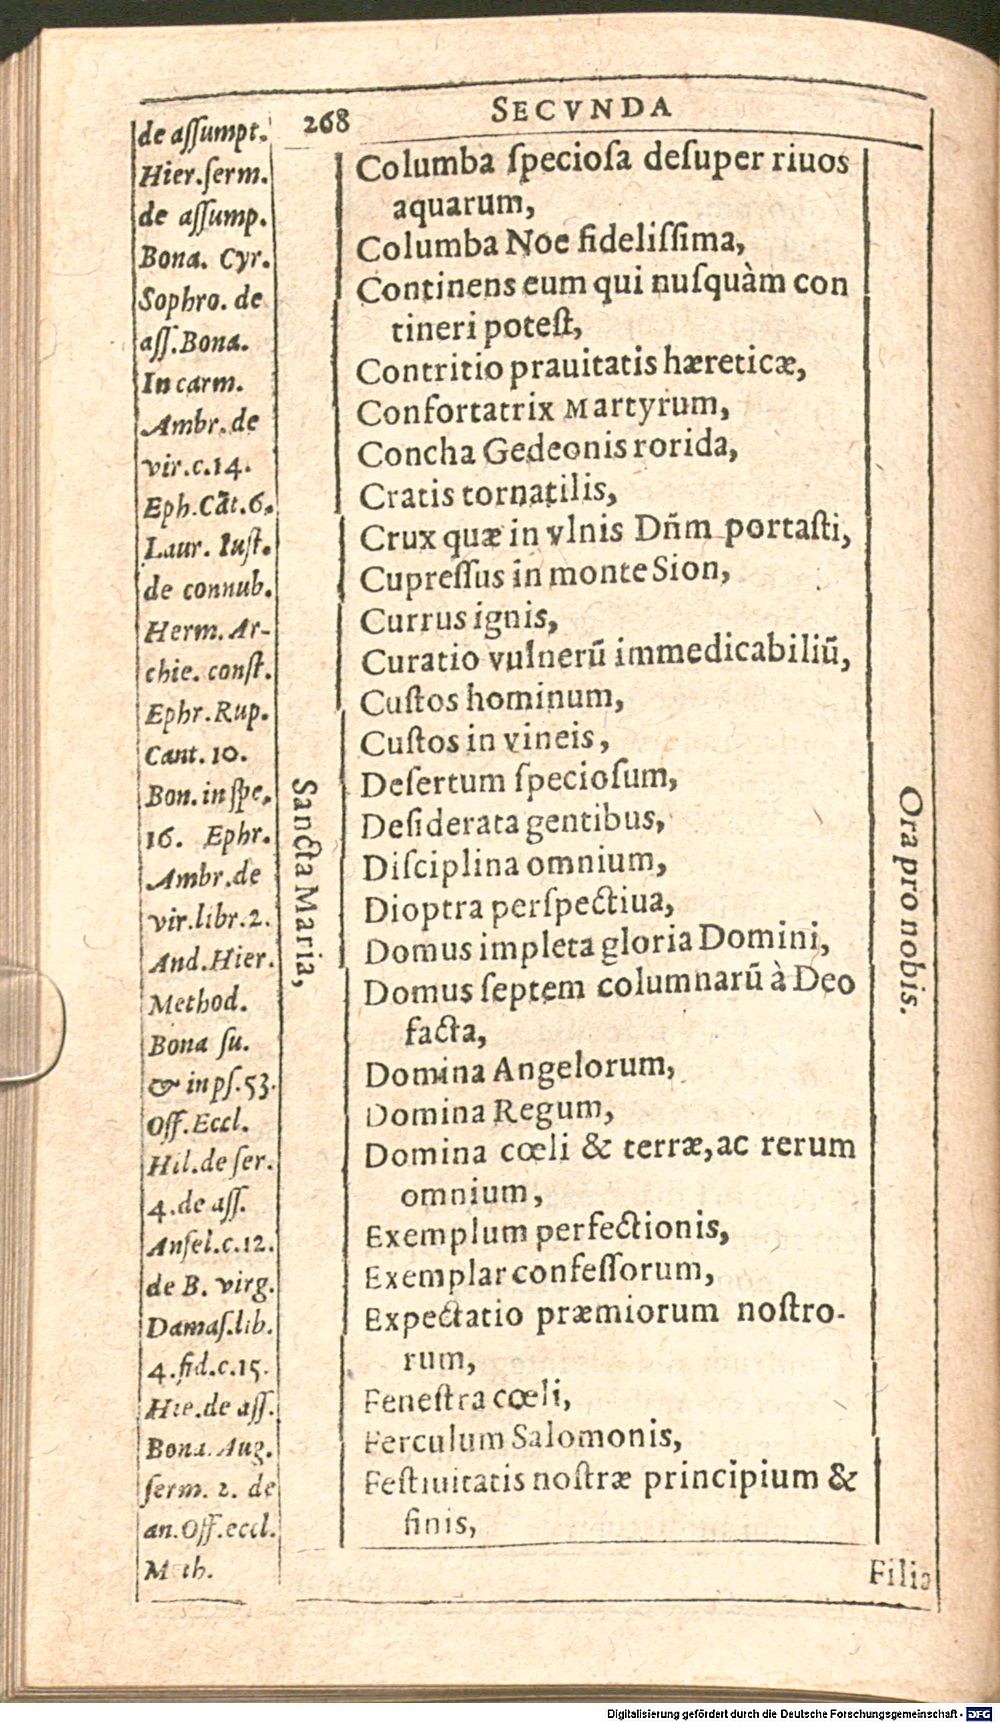 268
SECVNDA
de aſſumpt.
Hier.ſerm.
de aſſump.
Bona. Cyr.
Sophro. de
aſſ.Bona.
In carm.
Ambr.de
vir.c.14.
Eph.Cāt.6.
Laur. Iuſt.
de connub.
Herm. Ar-
chie. conſt.
Ephr.Rup.
Cant. 10.
Bon.in ſpe.
16. Ephr.
Ambr.de
vir.libr.2.
And.Hier.
Method.
Bona ſu.
& in pſ.53.
Off.Eccl.
Hil.de ſer.
4.de aſſ.
Anſel.c.12.
de B. virg.
Damaſ.lib.
4.fid.c.15.
Hie.de aſſ.
Bona. Aug.
ſerm. 2. de
an.Off.eccl.
Sancta Maria,
Columba ſpecioſa deſuper riuos
aquarum,
Columba Noe fideliſſima,
Continens eum qui nuſquàm con
tineri poteſt,
Contritio prauitatis hæreticæ,
Confortatrix Martyrum,
Concha Gedeonis rorida,
Cratis tornatilis,
Crux quæ in vlnis Dñm portaſti,
Cupreſſus in monte Sion,
Currus ignis,
Curatio vulnerũ immedicabiliũ,
Cuſtos hominum,
Cuſtos in vineis,
Deſertum ſpecioſum,
Deſiderata gentibus,
Diſciplina omnium,
Dioptra perſpectiua,
Domus impleta gloria Domini,
Domus ſeptem columnarũ à Deo
facta,
Domina Angelorum,
Domina Regum,
Domina cœli & terræ,ac rerum
omnium,
Exemplum perfectionis,
Exemplar confeſſorum,
Expectatio præmiorum noſtro-
rum,
Feneſtra cœli,
Ferculum Salomonis,
Feſtiuitatis noſtræ principium &
finis,
Ora pro nobis.
Filia
Digitalisierung gefördert durch die Deutsche Forschungsgemeinschaft - DFG